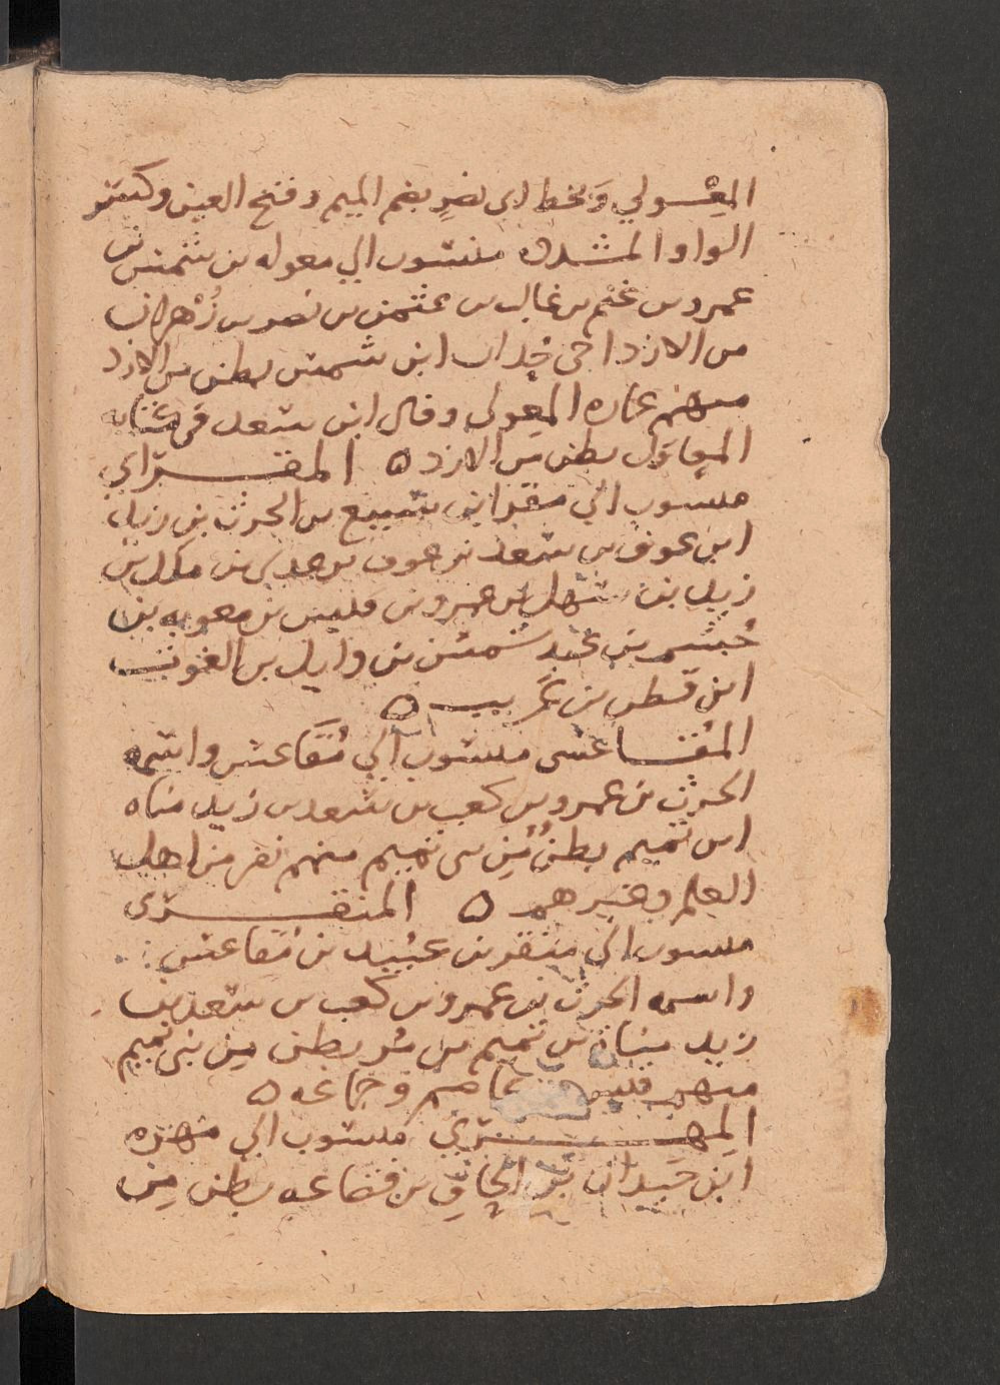 المِعْولي وَبخط ابى نصرٍ بضم الميم وفتح العين وكسر
الواو المشدده منسوب الي معوله بن شمس بن
عمرو بن غنم بن غالب بن عثمن بن نصر بن زُهْران
من الازد اخى حُدان ابن شمس بطن من الازد
منهم عماره المعولى وقال ابن سعد فى كتابه
المعاوَل بطن من الازد ه المقرّاي
منسوب الي مقرا بن سبيع بن الحرث بن زيد
ابن عوف بن سعد بن عوف بن عدى بن ملك بن
زيد بن سهل بن عمرو بن قيس بن معويه بن
جُشم بن عبد شمس بن وايل بن الغوث
ابن قطن بن عَريب ه
المُقَاعسى منسوب الي مُقَاعس واسمه
الحرث بن عمرو بن كعب بن سعد بن زيد مناه
ابن تميم بطنٌ مِن بنى تميم منهم نفر من اهل
العلم وغيرهم ه المنقرى
منسوب الى منقر بن عبُيد بن مُقَاعس
واسمه الحرث بن عمرو بن كعب بن سعد بن
زيد مناة بن تميم بن مُر بطن مِن بنى تميم
منهم قيس بن عاصم وجماعه ه
المهرِي منسوب الي مهره
ابن حَيدان بن الحافِ بن قضاعه بطن مِن